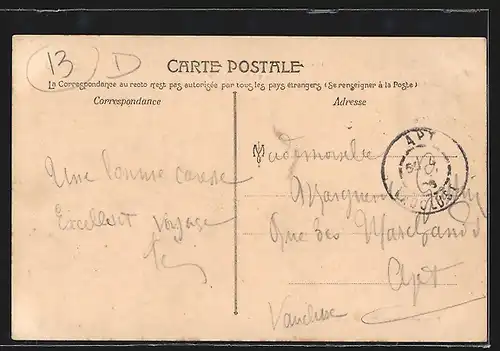 13 D
CARTE POSTALE
La Correspondance au recto n'est pas autorisée par tous les pays étrangers (Se renseigner à la Poste)
Correspondance
Adresse
APT
VAUCLUSE
Mademoiselle
Une bonne
Excellent voyage
Rue des Marchands
Apt
Vaucluse